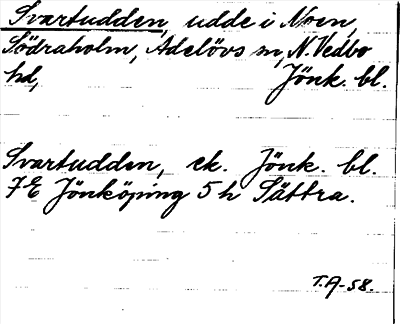 Svartudden, udde i Noen,
Södraholm, Adelövs sn, N. Vedbo
hd, Jönk. bl.
Svartudden, ek. Jönk. bl.
7E Jönköping 5h Sättra.
T.A-58.